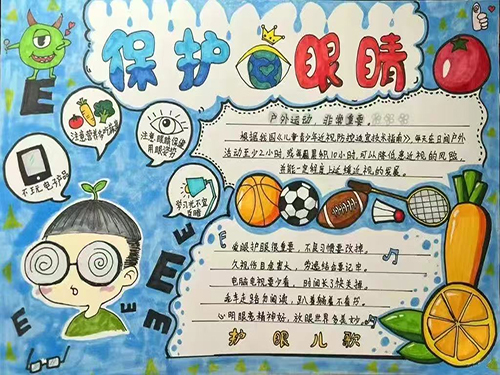 保护眼睛
户外运动 非常重要
根据我国《儿童青少年近视防控适宜技术指南》,每天在日间户外
活动至少2小时,或每周累积10小时,可以降低患近视的风险,
并能一定程度上延缓近视的发展。
注意营养多吃蔬果
注意眼睛保健用眼姿势
不玩电子产品
学习光不宜
爱眼护眼很重要,不良习惯要改掉。
久视伤目危害大,劳逸结合要记牢。
电脑电视要少看,时间长了快关掉。
走车走路勿阅读,趴着躺着不看书。
心明眼亮精神好,放眼世界多美妙。
护眼儿歌
E
E
E
E
E
E
E